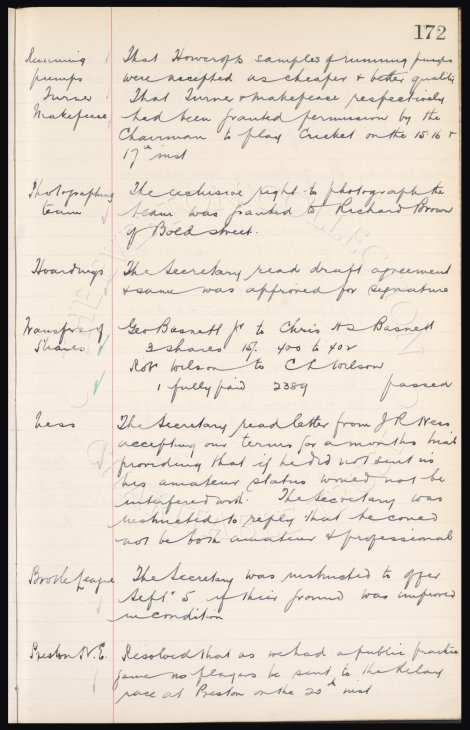 172
Running That Howcrofts samples of running pumps
pumps were accepted as cheaper & better quality
Turner That Turner & Makepeace respectively
Makepeace had been granted permission by the
Chairman to play Cricket on the 15. 16 &
17th inst
Photographing The exclusive right to photograph the
team team was granted to Richard Brown
of Bold Street.
Hoardings The Secretary read draft agreement
& same was approved for signature
Transfers of Geo Basnett Jr to Chris Basnett
Shares 3 shares 15/- 400 to 402
Robt Wilson to C L Wilson
1 fully paid 2389 passed
Ness The Secretary read letter from J R Ness
accepting our terms for a months trial
providing that if he did not suit us
his amateur status would not be
interfered with. The Secretary was
instructed to reply that he could
not be both amateur & professional
Bootle League The Secretary was instructed to offer
Sept 5 if their ground was improved
in condition
Preston N.E. Resolved that as we had a public practice
game no players be sent to the Relay
race at Preston on the 20th inst